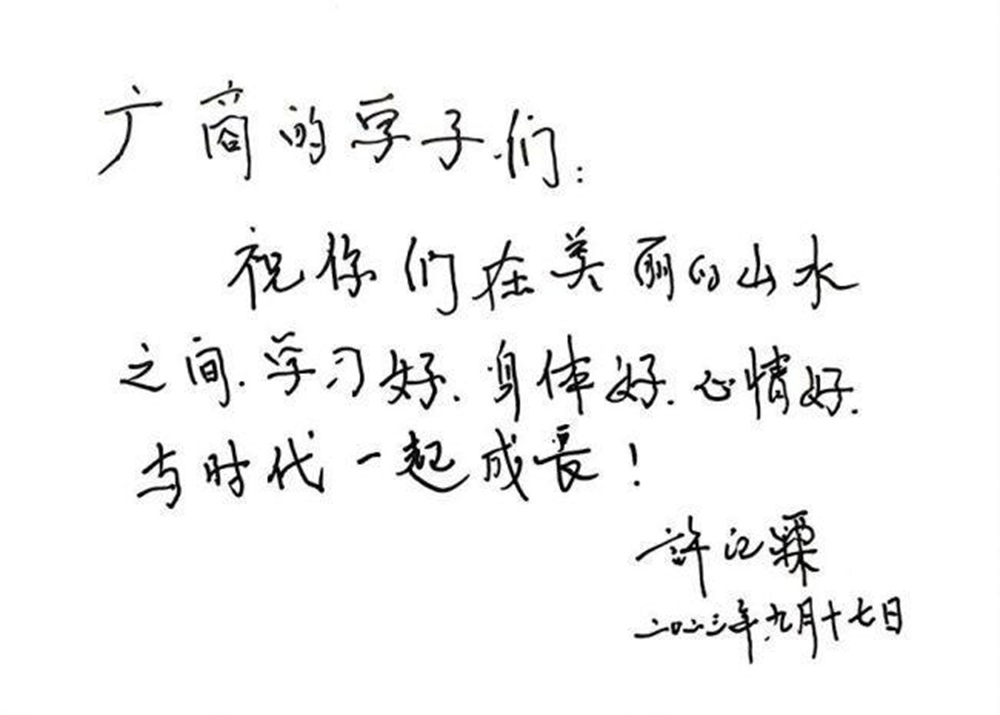 广商的学子们：
祝你们在美丽的山水
之间.学习好.身体好.心情好.
与时代一起成長！
許江霖
二〇二三年九月十七日